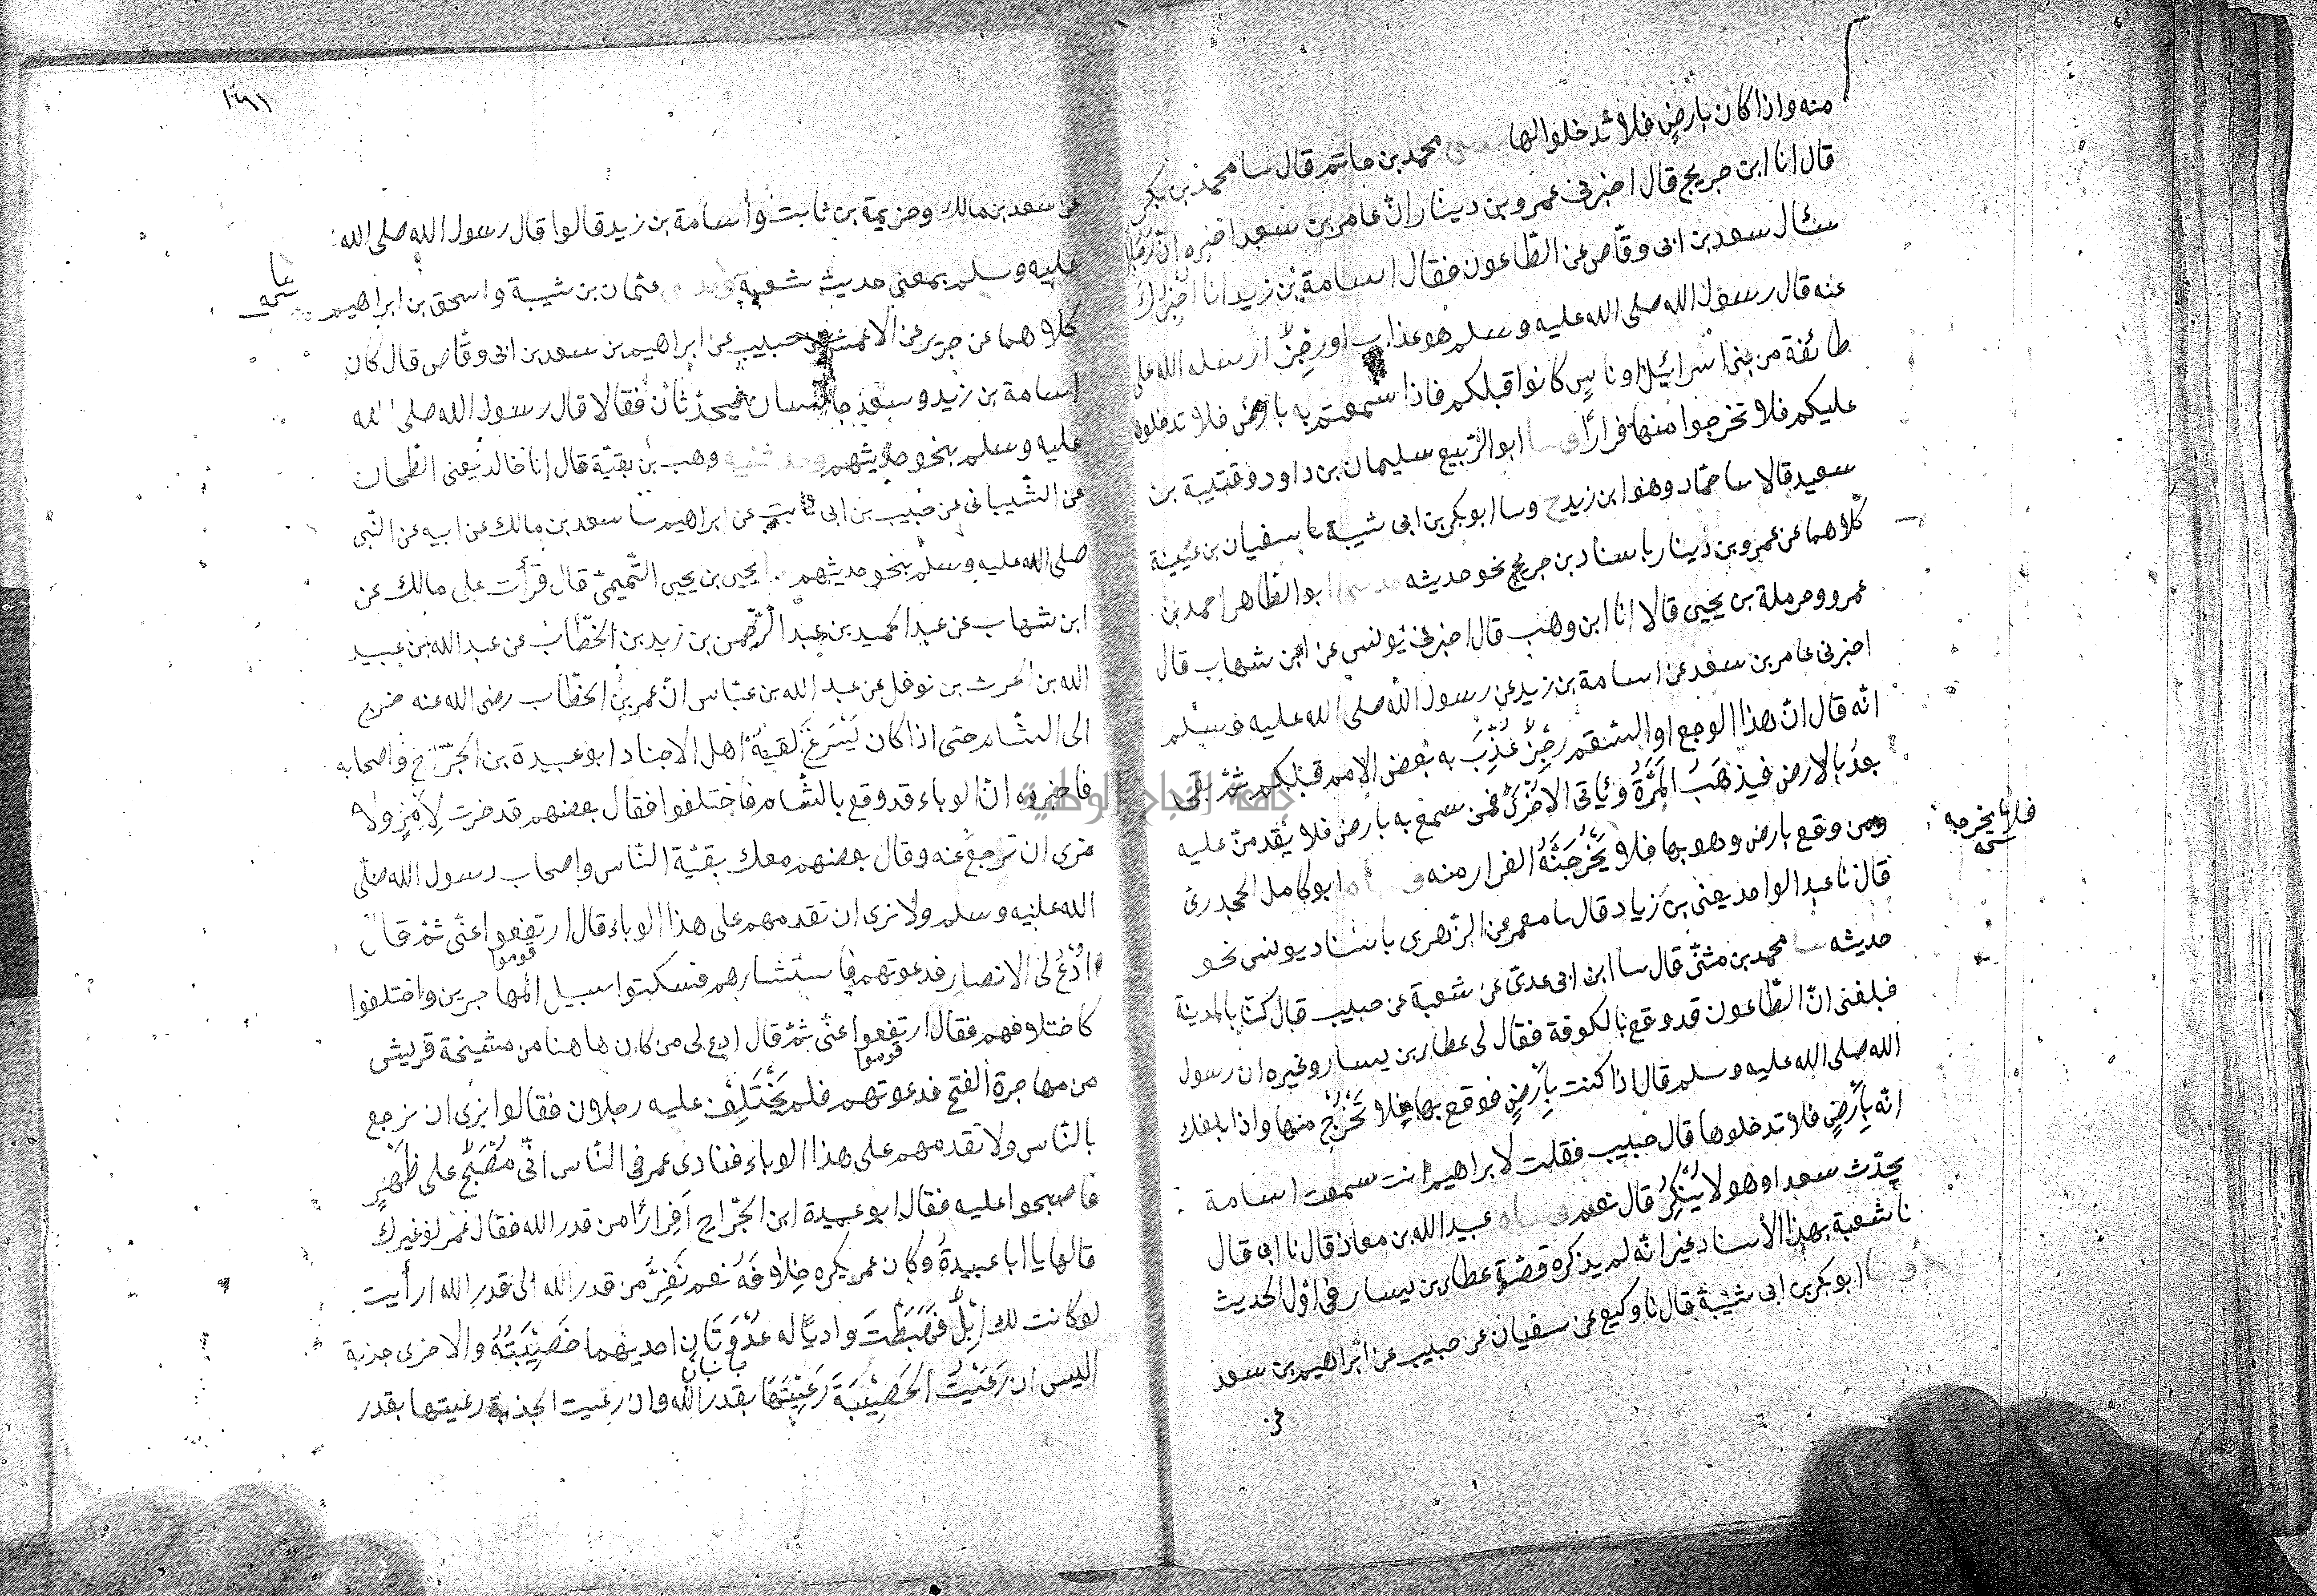 منه واذا كان بارضٍ فلا تدخلوها محمد بن حاتم قال سا محمد بن بكر
قال انا ابن جريج قال اخبرنى عمرو بن دينار انّ عامر بن سعد اخبره انّ رجلا
سئال سعد بن ابى وقّاص عن الطّاعون فقال اسامة بن زيد انا اُخْبِرُكَ
عنه قال رسول الله صلى الله عليه وسلم هو عذاب او رِجْزٌ ارسله الله على
طائفة من بنى اسرائيل او ناس كانوا قبلكم فاذا سمعتم به بارض فلا تدخلوها
عليكم فلا تخرجوا منها فرارًا وسا ابو الرّبيع سليمان بن داود وقتيبة بن
سعيد قالا سا حمّاد وهو ابن زيد ح وسا ابو بكر بن ابى شيبة نا سفيان بن عيينة
كلاهما عن عمرو بن دينار باسناد بن جريج نحو حديثه حدسى ابو الطّاهر احمد بن
عمرو وحرملة بن يحيى قالا انا ابن وهب قال اخبرنى يونس عن ابن شهاب قال
اخبرنى عامر بن سعد عن اسامة بن زيد عن رسول الله صلى الله عليه وسلم
انّه قال انّ هذا الوجع او السّقم رجْزٌ عُذِّبَ به بعض الامم قبلكم ثمّ بقى
بعدُ بالارض فيذهَبُ المَرَّةَ ويأتى الاخْرَى فمن سمع به بارض فلا يقدمنّ عليه
ومن وقع بارض وهو بها فلا يُخْرِجَنَّهُ الفرار منه وساه ابو كامل الجحدرى
فلا يخرجه
نسخه
قال نا عبد الواحد يعنى بن زياد قال سا معمر عن الزّهرى باسناد يونس نحو
حديثه سا محمد بن مثنّى قال سا ابن ابى عدىّ عن شعبة عن حبيب قال كنّا بالمدينة
فبلغنى انّ الطّاعون قد وقع بالكوفة فقال لى عطاء بن يسار وغيره ان رسول
الله صلى الله عليه وسلم قال اذا كنت بِأرْضٍ فوقع بها فلا تَخْرُجْ منها واذا بلغك
انّه بِأَرْضٍ فلا تدخلوها قال حبيب فقلت لابراهيم انت سمعت اسامة
يحدّث سعدا وهو لا يُنْكِرُ قال نعم وساه عبيد الله بن معاذ قال نا ابى قال
نا شعبة بهذا الأسناد غير انّه لم يذكره قصّة عطاء بن يسار فى اوّل الحديث
وسا ابو بكر بن ابى شيبة قال نا وكيع عن سفيان عن حبيب عن ابراهيم بن سعد
عن
١٣٩١
عن سعد بن مالك وخزيمة بن ثابت وأسامة بن زيد قالوا قال رسول الله صلى الله
عليه وسلم بمعنى حديث شعبة عثمان بن شيبة واسحق بن ابراهيم
كلاهما عن جرير عن الاعمش عن حبيب عن ابراهيم بن سعد بن ابى وقّاص قال كان
اسامة بن زيد وسعد جالسان فيحدّثان فقالا قال رسول الله صلى الله
عليه وسلم بنحو حديثهم وحدثنيه وهب بن بقيّة قال انا خالد يعنى الطّحان
عن الشّيبانى عن حبيب بن ابى ثابت عن ابراهيم سا سعد بن مالك عن ابيه عن النّبى
صلى الله عليه وسلم بنحو حديثهم يحيى بن يحيى التّميمىّ قال قرأت على مالك عن
ابن شهاب عن عبد الحميد بن عبد الرّحمن بن زيد بن الخطّاب عن عبد الله بن عبيد
الله بن الحرث بن نوفل عن عبد الله بن عبّاس انّ عمر بن الخطّاب رضى الله عنه خرج
الى الشّام حتى اذا كان بَسَرْغَ لقيهُ اهل الاجناد ابو عبيدة بن الجرّاح واصحابه
فاخبروه انّ الوباء قد وقع بالشّام فاختلفوا فقال بعضهم قد خرجت لِاَمْرٍ ولا
نرى ان ترجع عنه وقال بعضهم معك بقيّة النّاس واصحاب رسول الله صلّى
الله عليه وسلم ولا نرى ان تقدمهم على هذا الوباء قال ارتفعوا عنّى ثمّ قال
قوموا
ادْعُ لى الانصار فدعوتهم فاستشارهم فسلكوا سبيل المهاجرين واختلفوا
كاختلافهم فقال ارتفعوا عنّى ثمّ قال ادع لى من كان هاهنا من مشيخة قريش
قوموا
من مهاجرة الفتح فدعوتهم فلم يَخْتَلِفْ عليه رجلان فقالوا نرى ان نرجع
بالنّاس ولا تقدمهم على هذا الوباء فنادى عمر فى النّاس انّى مُصْبِحٌ على ظَهْرٍ
فاصبحوا عليه فقال ابو عبيدة ابن الجرّاح اَفِرارًا من قدر الله فقال عمر لو غيرك
قالها يا ابا عبيدةُ وكان عمر يكره خِلافَهُ نعم نَفِرُّ من قدر الله الى قدر الله ارأيت
لو كانت لك اِبِلٌ فَهَبَطْتَ واديًا له عُدْوَتَانِ احديهما خَصِيْبَتُهُ والاخرى جدبة
جانبان
اليس ان رَعَيْتَ الخَصِيْبَةَ رَعَيْتَهَا بقدر الله وان رعيت الجدبة رعيتها بقدر
جامعة النجاح الوطنية